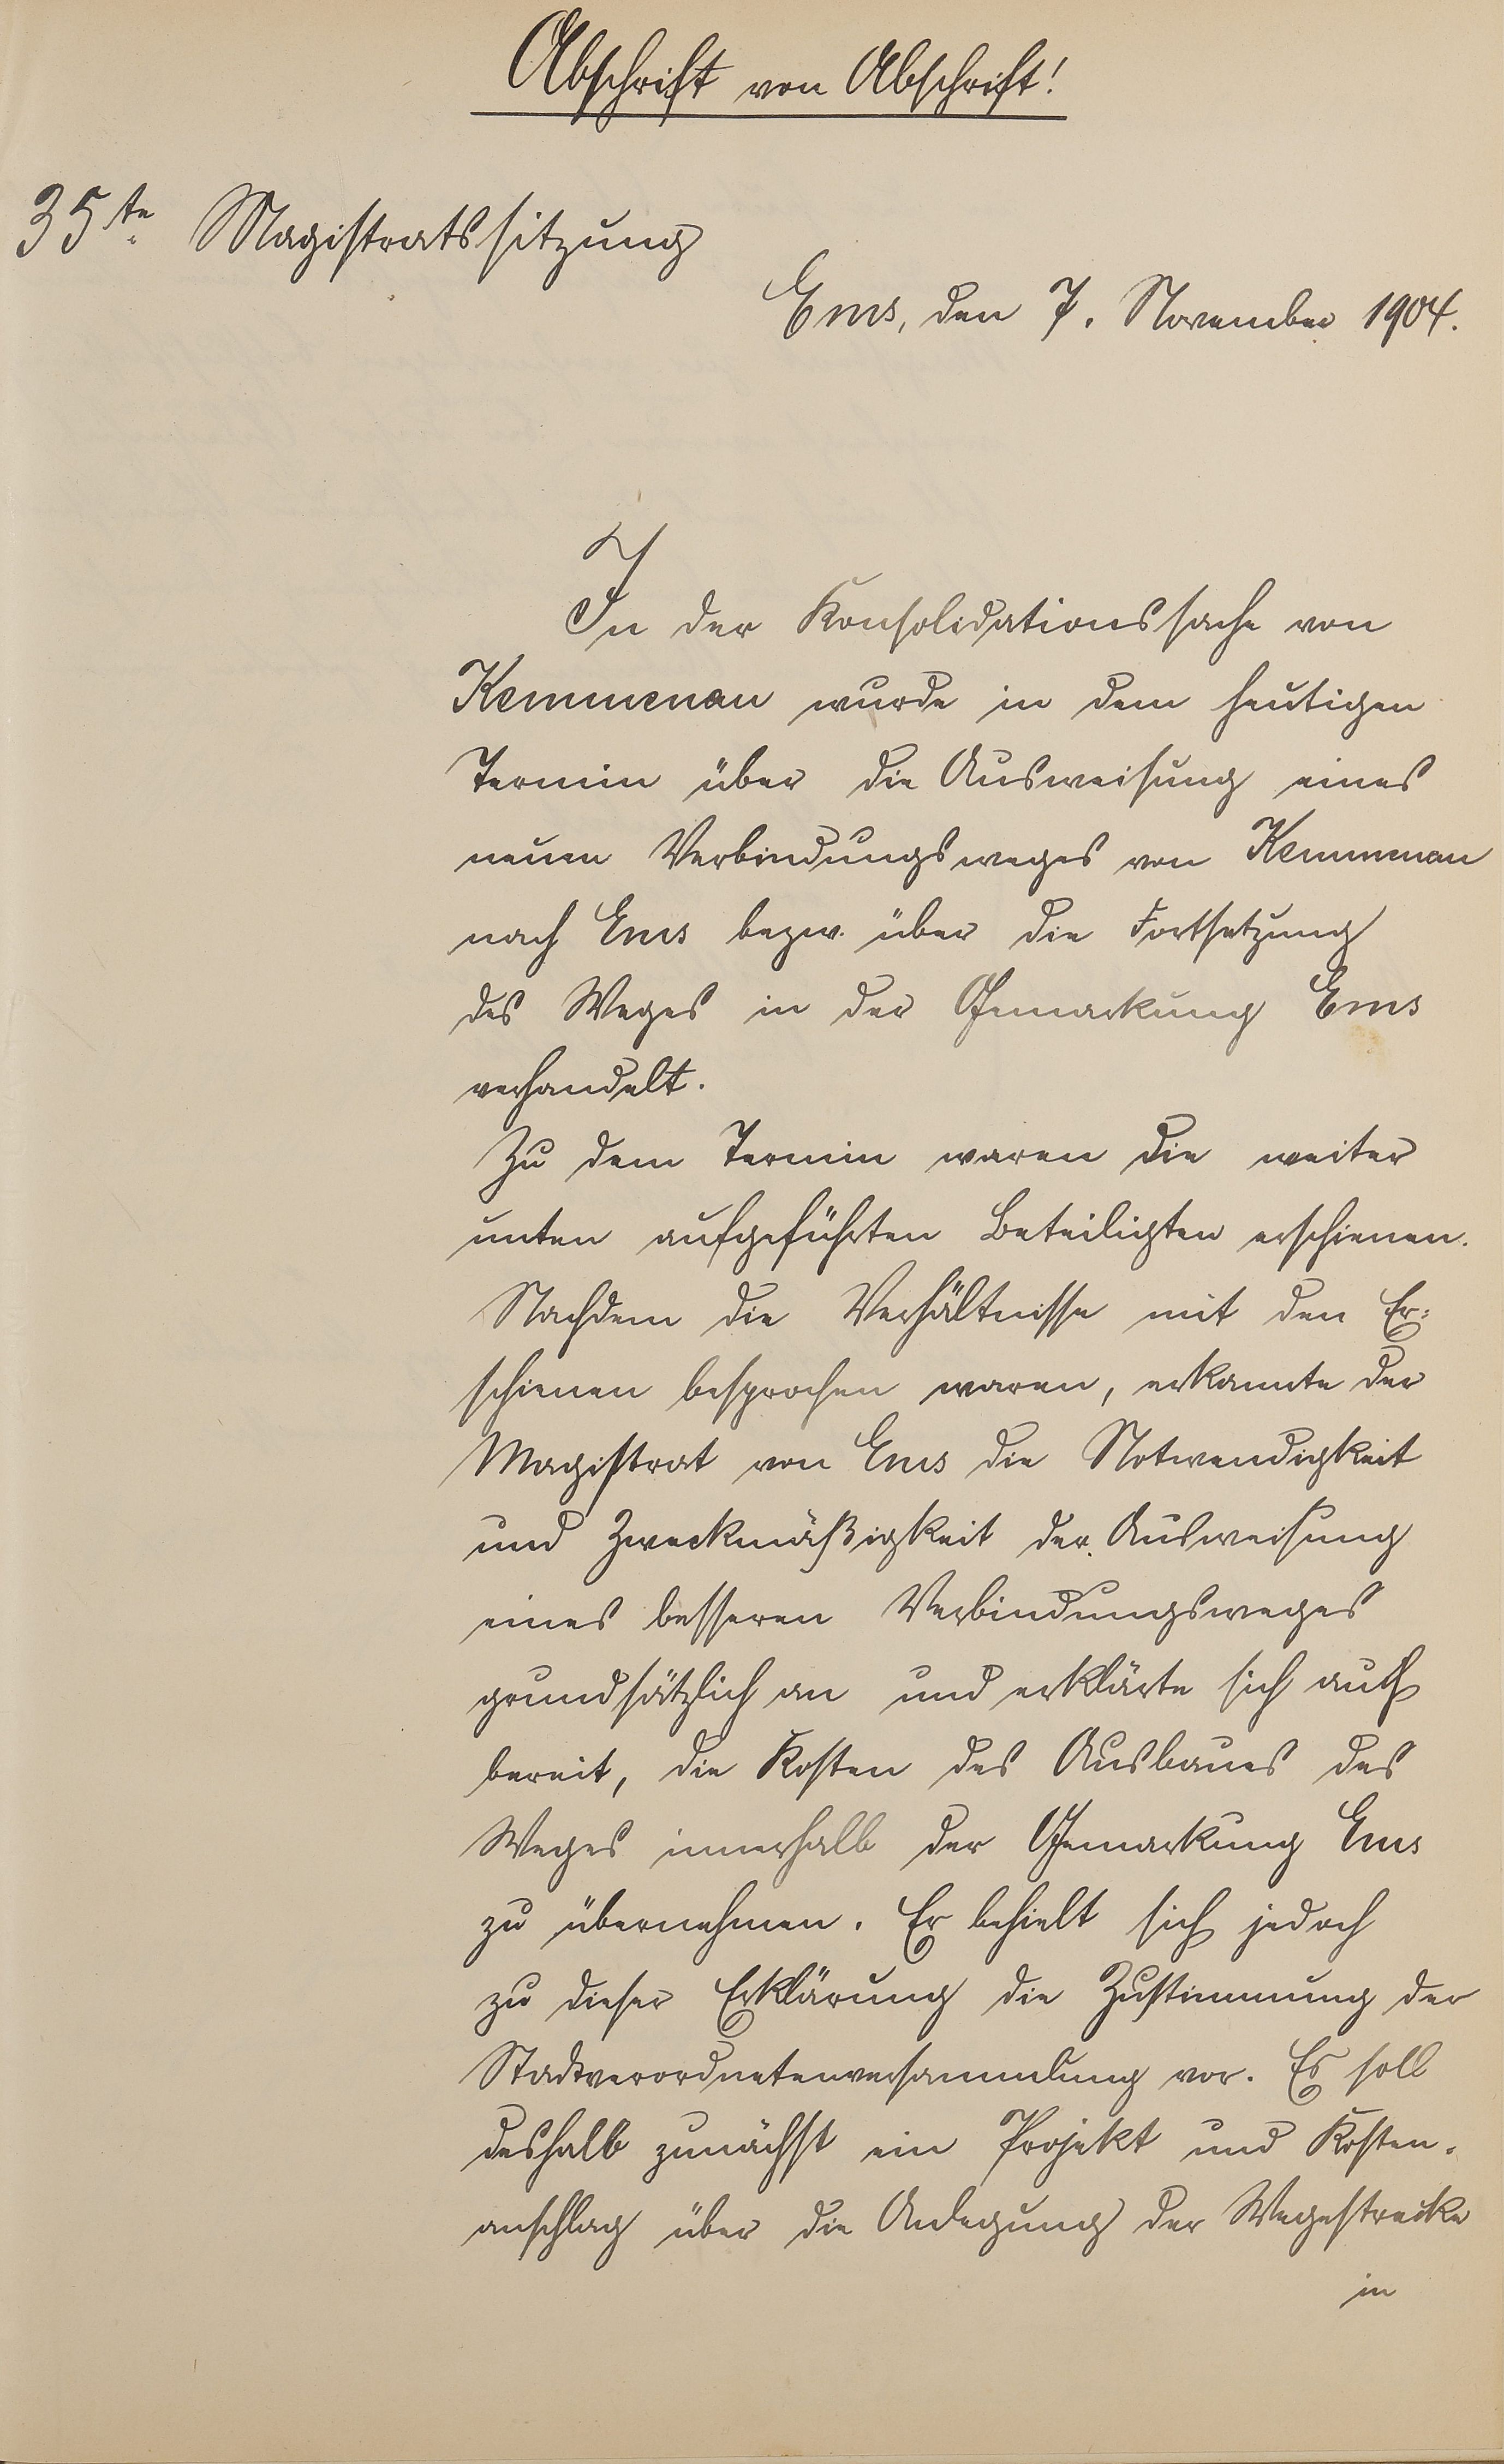 Abschrift von Abschrift!
35te Magistratssitzung
Ems, den 7. November 1904.
In der Konsolidationssache von
Kemmenau wurde in dem heutigen
Termin über die Ausweisung eines
neuen Verbindungsweges von Kemmenau
nach Ems bezw. über die Fortsetzung
des Weges in der Gemarkung Ems
verhandelt.
Zu dem Termin waren die weiter
unten aufgeführten Beteiligten erschienen.
Nachdem die Verhältnisse mit den Er-
schienen besprochen waren, erkannte der
Magistrat von Ems die Notwendigkeit
und Zweckmäßigkeit der Ausweisung
eines besseren Verbindungsweges
grundsätzlich an und erklärte sich auch
bereit, die Kosten des Ausbaues des
Weges innerhalb der Gemarkung Ems
zu übernehmen. Er behielt sich jedoch
zu dieser Erklärung die Zustimmung der
Stadtverordnetenversammlung vor. Es soll
deshalb zunächst ein Projekt und Kosten-
anschlag über die Anlegung der Wegestrecke
in